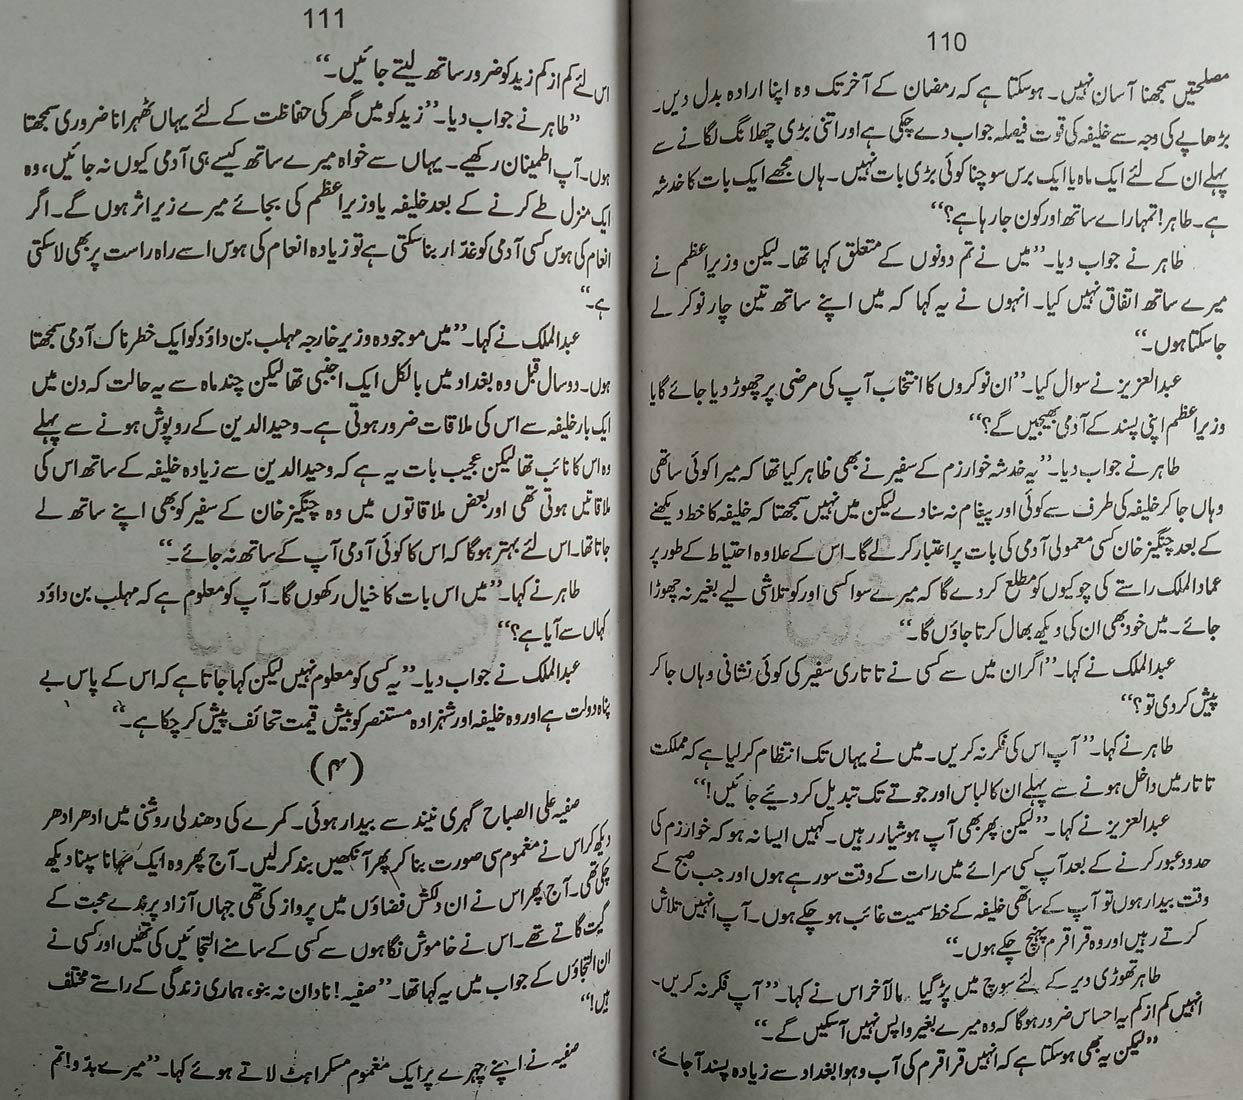 110
مصلحتیں سمجھنا آسان نہیں۔ ہوسکتا ہے کہ رمضان کے آخر تک وہ اپنا ارادہ بدل دیں۔
بڑھاپے کی وجہ سے خلیفہ کی قوت فیصلہ جواب دے چکی ہے اور اتنی بڑی چھلانگ لگانے سے
پہلے ان کے لئے ایک ماہ یا ایک برس سوچنا کوئی بڑی بات نہیں۔ ہاں مجھے ایک بات کا خدشہ
ہے۔ طاہر! تمہارے ساتھ اور کون جارہا ہے؟‘‘
طاہر نے جواب دیا۔ ’’میں نے تم دونوں کے متعلق کہا تھا۔ لیکن وزیراعظم نے
میرے ساتھ اتفاق نہیں کیا۔ انہوں نے یہ کہا کہ میں اپنے ساتھ تین چار نوکر لے
جاسکتا ہوں۔‘‘
عبدالعزیز نے سوال کیا۔ ’’ان نوکروں کا انتخاب آپ کی مرضی پر چھوڑ دیا جائے گا یا
وزیراعظم اپنی پسند کے آدمی بھیجیں گے؟‘‘
طاہر نے جواب دیا۔ ’’یہ خدشہ خوارزم کے سفیر نے بھی ظاہر کیا تھا کہ میرا کوئی ساتھی
وہاں جاکر خلیفہ کی طرف سے کوئی اور پیغام نہ سنا دے لیکن میں نہیں سمجھتا کہ خلیفہ کا خط دیکھنے
کے بعد چنگیز خان کسی معمولی آدمی کی بات پر اعتبار کرلے گا۔ اس کے علاوہ احتیاط کے طور پر
عماد الملک راستے کی چوکیوں کو مطلع کردے گا کہ میرے سوا کسی اور کو تلاشی لیے بغیر نہ چھوڑا
جائے۔ میں خود بھی ان کی دیکھ بھال کرتا جاؤں گا۔‘‘
عبدالملک نے کہا۔ ’’اگر ان میں سے کسی نے تاتاری سفیر کی کوئی نشانی وہاں جاکر
پیش کردی تو؟‘‘
طاہر نے کہا۔ ’’آپ اس کی فکر نہ کریں۔ میں نے یہاں تک انتظام کرلیا ہے کہ مملکت
تاتار میں داخل ہونے سے پہلے ان کا لباس اور جوتے تک تبدیل کردیئے جائیں!‘‘
عبدالعزیز نے کہا۔ ’’لیکن پھر بھی آپ ہوشیار رہیں۔ کہیں ایسا نہ ہو کہ خوارزم کی
حدود عبور کرنے کے بعد آپ کسی سرائے میں رات کے وقت سورہے ہوں اور جب صبح کے
وقت بیدار ہوں تو آپ کے ساتھی خلیفہ کے خط سمیت غائب ہوچکے ہوں۔ آپ انہیں تلاش
کرتے رہیں اور وہ قراقرم پہنچ چکے ہوں۔‘‘
طاہر تھوڑی دیر کے لئے سوچ میں پڑگیا بالآخر اس نے کہا۔ ’’آپ فکر نہ کریں۔
انہیں کم از کم یہ احساس ضرور ہوگا کہ وہ میرے بغیر واپس نہیں آسکیں گے۔‘‘
’’لیکن یہ بھی ہوسکتا ہے کہ انہیں قراقرم کی آب وہوا بغداد سے زیادہ پسند آجائے،
111
اس لئے کم از کم زید کو ضرور ساتھ لیتے جائیں۔‘‘
’’طاہر نے جواب دیا۔ ’’زید کو میں گھر کی حفاظت کے لئے یہاں ٹھہرانا ضروری سمجھتا
ہوں۔ آپ اطمینان رکھیے۔ یہاں سے خواہ میرے ساتھ کیسے ہی آدمی کیوں نہ جائیں، وہ
ایک منزل طے کرنے کے بعد خلیفہ یا وزیراعظم کی بجائے میرے زیراثر ہوں گے۔ اگر
انعام کی ہوس کسی آدمی کو غدار بناسکتی ہے تو زیادہ انعام کی ہوس اسے راہ راست پر بھی لاسکتی
ہے۔‘‘
عبدالملک نے کہا۔ ’’میں موجودہ وزیر خارجہ مہلب بن داؤد کو ایک خطرناک آدمی سمجھتا
ہوں۔ دو سال قبل وہ بغداد میں بالکل ایک اجنبی تھا لیکن چند ماہ سے یہ حالت کہ دن میں
ایک بار خلیفہ سے اس کی ملاقات ضرور ہوتی ہے۔ وحید الدین کے روپوش ہونے سے پہلے
وہ اس کا نائب تھا لیکن عجیب بات یہ ہے کہ وحید الدین سے زیادہ خلیفہ کے ساتھ اس کی
ملاقاتیں ہوتی تھی اور بعض ملاقاتوں میں وہ چنگیز خان کے سفیر کو بھی اپنے ساتھ لے
جاتا تھا۔ اس لئے بہتر ہوگا کہ اس کا کوئی آدمی آپ کے ساتھ نہ جائے۔‘‘
طاہر نے کہا۔ ’’میں اس بات کا خیال رکھوں گا۔ آپ کو معلوم ہے کہ مہلب بن داؤد
کہاں سے آیا ہے؟‘‘
عبدالملک نے جواب دیا۔ ’’یہ کسی کو معلوم نہیں لیکن کہا جاتا ہے کہ اس کے پاس بے
پناہ دولت ہے اور وہ خلیفہ اور شہزادہ مستنصر کو بیش قیمت تحائف پیش کرچکا ہے۔‘‘
(۴)
صفیہ علی الصباح گہری نیند سے بیدار ہوئی۔ کمرے کی دھندلی روشنی میں ادھر ادھر
دیکھ کر اس نے مغموم سی صورت بنا کر پھر آنکھیں بند کرلیں۔ آج پھر وہ ایک سہانا سپنا دیکھ
چکی تھی۔ آج پھر اس نے ان دلکش فضاؤں میں پرواز کی تھی جہاں آزاد پرندے محبت کے
گیت گاتے تھے۔ اس نے خاموش نگاہوں سے کسی کے سامنے التجائیں کی تھیں اور کسی نے
ان التجاؤں کے جواب میں یہ کہا تھا۔ ’’صفیہ! نادان نہ بنو، ہماری زندگی کے راستے مختلف
ہیں!‘‘
صفیہ نے اپنے چہرے پر ایک مغموم مسکراہٹ لاتے ہوئے کہا۔ ’’میرے بدو! تم